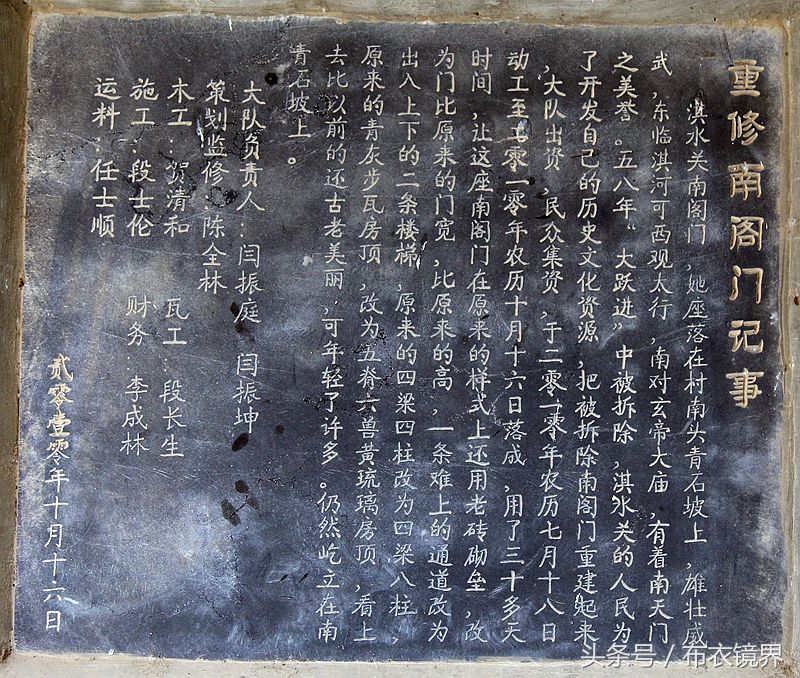 重修南阁门记事
淇水关南阁门，她座落在村南头青石坡上，雄壮威
武，东临淇河可西观太行，南对玄帝大庙，有着南天门
之美誉。五八年“大跃进”中被拆除，淇水关的人民为
了开发自己的历史文化资源，把被拆除南阁门重建起来
，大队出资，民众集资，于二零一零年农历七月十八日
动工至二零一零年农历十月十六日落成，用了三十多天
时间，让这座南阁门在原来的样式上还用老砖砌垒，改
为门比原来的门宽，比原来的高，一条难上的通道改为
出入上下的二条楼梯，原来的四梁四柱改为四梁八柱，
原来的青灰步瓦房顶，改为五脊六兽黄琉璃房顶，看上
去比以前的还古老美丽，可年轻了许多。仍然屹立在南
青石坡上。
大队负责人：闫振庭 闫振坤
策划监修：陈全林
木工：贺清和 瓦工：段长生
施工：段士伦 财务：李成林
运料：任士顺
贰零壹零年十月十六日
头条号/布衣镜界